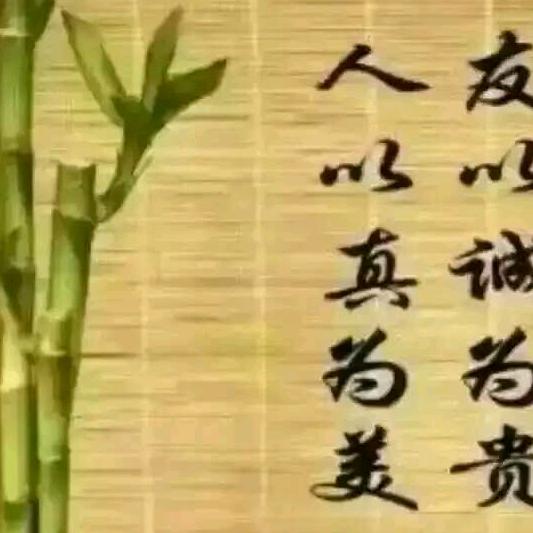 友以诚为贵
人以真为美